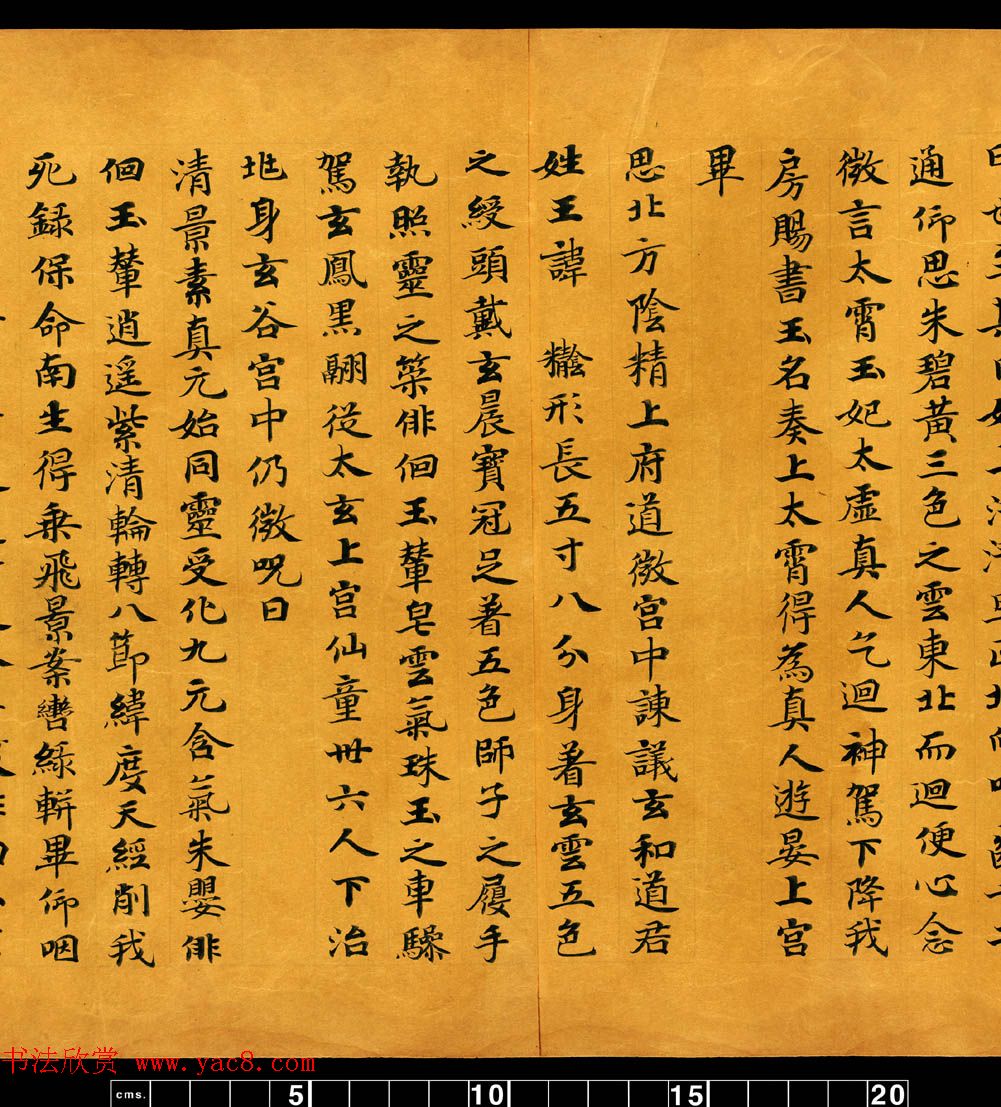 通仰思朱碧黃三色之雲東北而迴便心念
微言太霄玉妃太虛真人乞迴神駕下降我
房賜書玉名奏上太霄得為真人遊晏上宮
畢
思北方陰精上府道微宮中諫議玄和道君
姓王諱 形長五寸八分身著玄雲五色
之綬頭戴玄晨寶冠足著五色師子之履手
執照靈之築俳佪玉輦皂雲氣珠玉之車驂
駕玄鳳黑翮從太玄上宮仙童卅六人下治
兆身玄谷宮中仍微呪曰
清景素真元始同靈受化九元含氣朱嬰俳
佪玉輦逍遥紫清輪轉八節緯度天經削我
死録保命南生得乗飛景案轡綠軿畢仰咽
书法欣赏 www.yac8.com
cms. 5 10 15 20